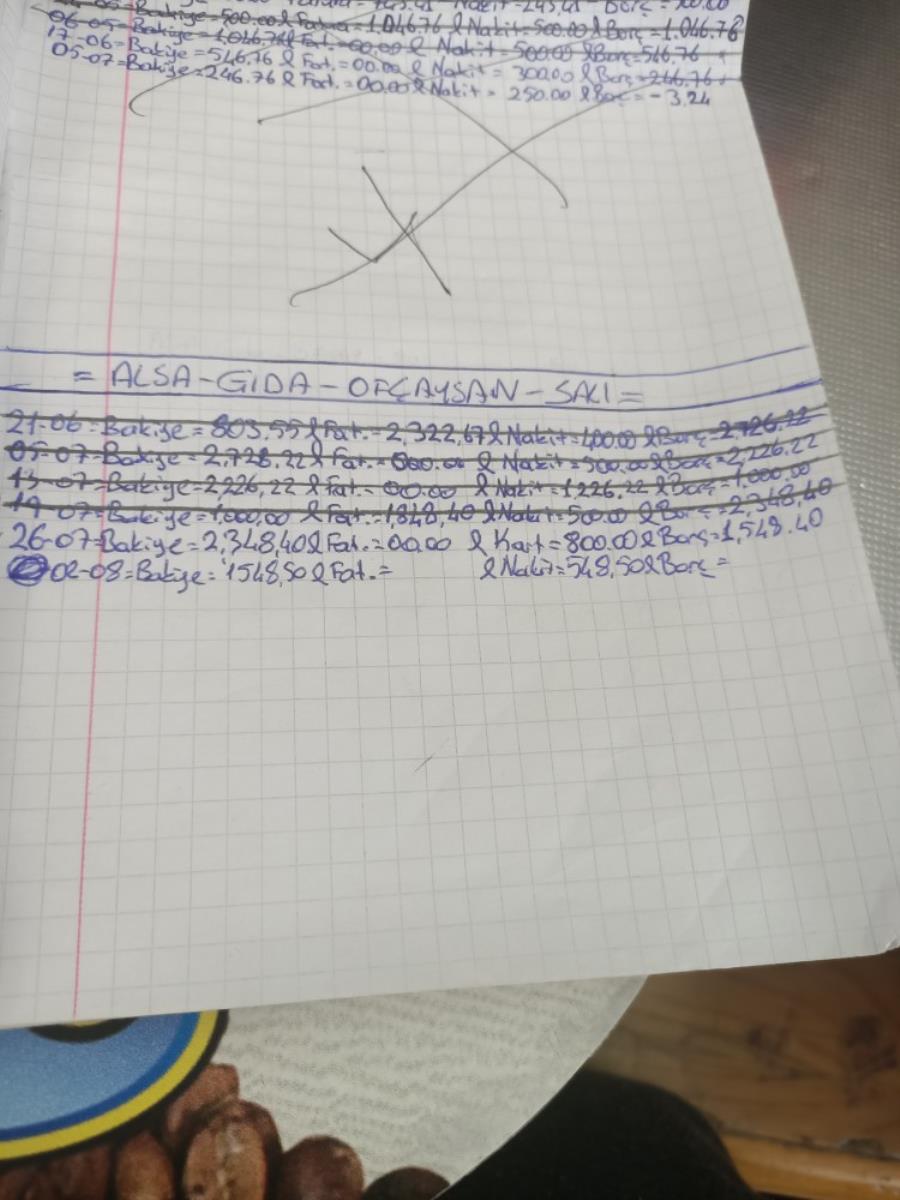 Nakit=245,41 Borç=
06-05=Bakiye=500.00 l Fatura=1.046.76 l Nakit=500.00 l Borç=1.046.78
06-05=Bakiye=1,046.76 l Fat.=00.00 l Nakit=500.00 l Borç=546.76
17-06=Bakiye=546.76 l Fat.=00.00 l Nakit=300.00 l Borç=246.76
05-07=Bakiye=246.76 l Fat.=00.00 l Nakit=250.00 l Borç=-3.24
=ALSA-GIDA-OFÇAYSAN-SALI=
21-06=Bakiye=803,55 l Fat.=2,322,67 l Nakit=400.00 l Borç=2.726.22
05-07=Bakiye=2,728.22 l Fat.=000.00 l Nakit=500.00 l Borç=2,226.22
13-07=Bakiye=2,226,22 l Fat.=00.00 l Nakit=1,226.22 l Borç=1,000.00
19-07=Bakiye=1,000,00 l Fat.=1848,40 l Nakit=500.00 l Borç=2,348,40
26-07=Bakiye=2,348,40 l Fat.=00.00 l Kart=800.00 l Borç=1,548.40
02-08=Bakiye=1548,50 l Fat.= l Nakit=548,50 l Borç=